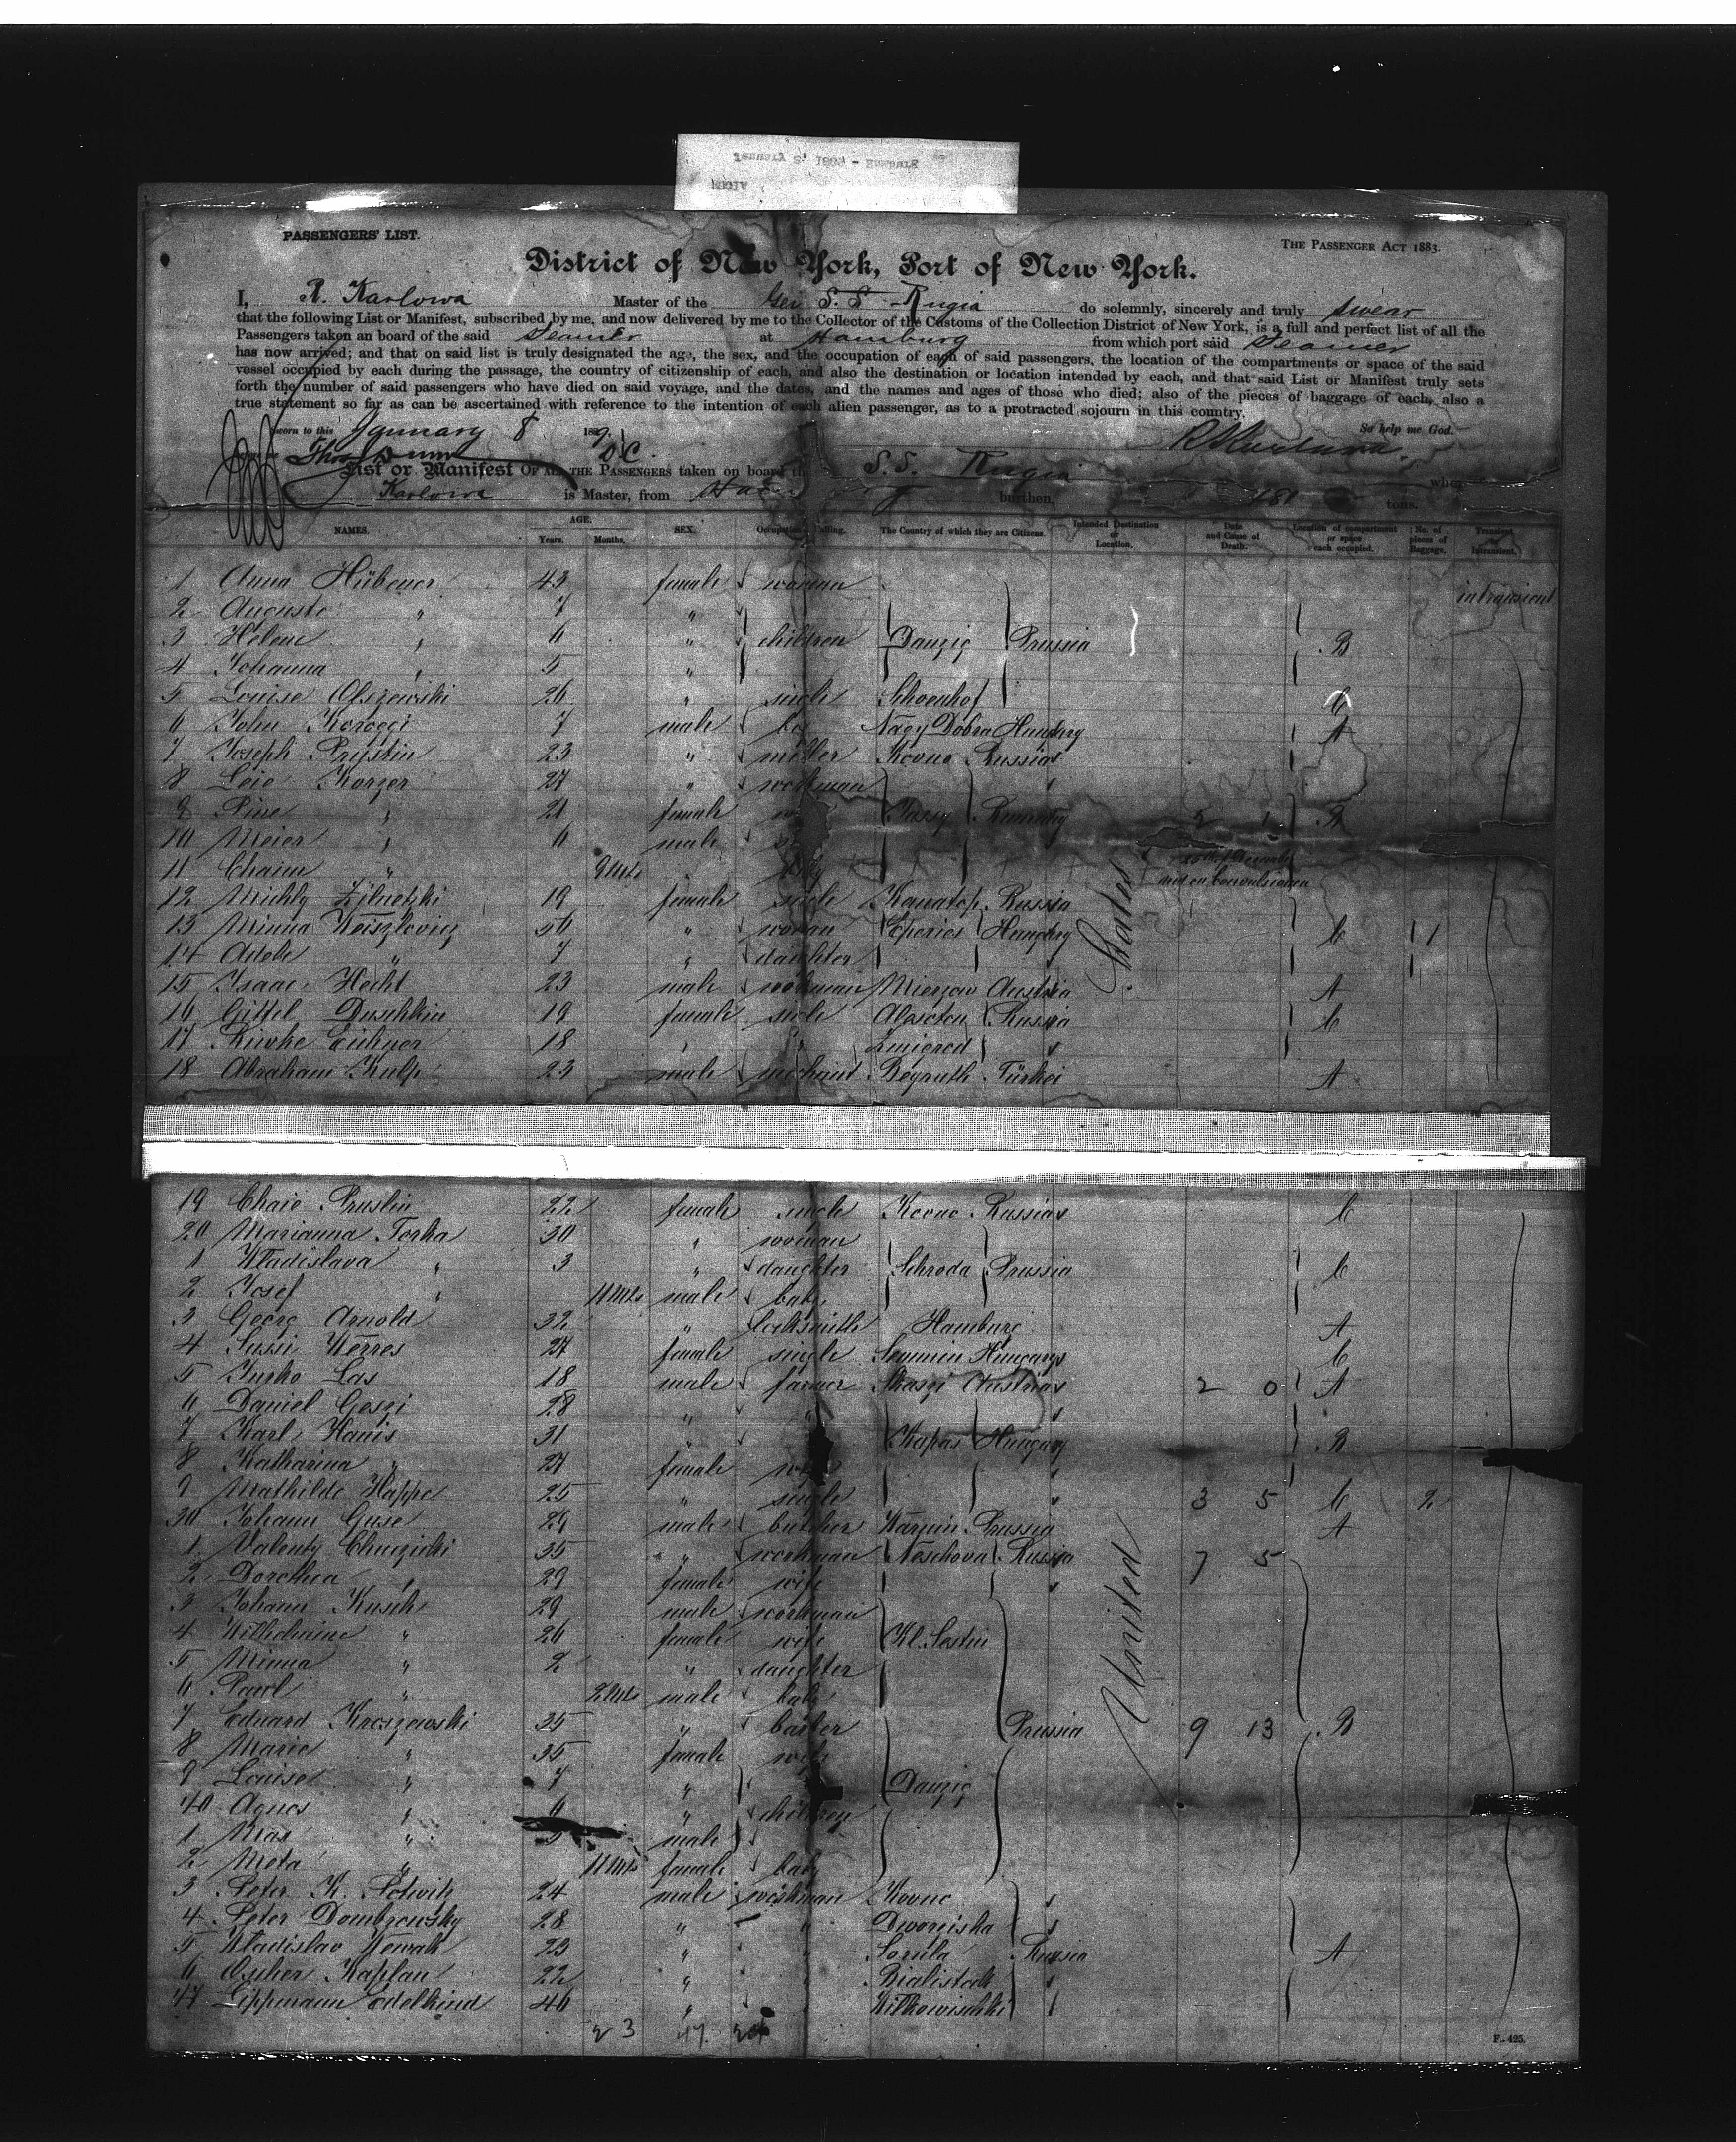 PASSENGERS' LIST.
THE PASSENGER ACT 1883.
District of New York, Port of New York.
I, R. Karlowa Master of the Ger S. S. Rugia do solemnly, sincerely and truly swear
that the following List or Manifest, subscribed by me, and now delivered by me to the Collector of the Customs of the Collection District of New York, is a full and perfect list of all the
Passengers taken an board of the said Steamer at Hamburg from which port said Steamer
has now arrived; and that on said list is truly designated the age, the sex, and the occupation of each of said passengers, the location of the compartments or space of the said
vessel occupied by each during the passage, the country of citizenship of each, and also the destination or location intended by each, and that said List or Manifest truly sets
forth the number of said passengers who have died on said voyage, and the dates, and the names and ages of those who died; also of the pieces of baggage of each, also a
true statement so far as can be ascertained with reference to the intention of each alien passenger, as to a protracted sojourn in this country.
Sworn to this January 8 1891 So help me God.
D.C.
List or Manifest OF ALL THE PASSENGERS taken on board the S. S. Rugia
Karlowa is Master, from burthen, tons.
NAMES. AGE. Years. Months. SEX. Occupation Calling. The Country of which they are Citizens. Intended Destination or Location. Date and Cause of Death. Location of compartment or space each occupied. No. of pieces of Baggage. Transient or Intransient.
1 Anna Hübener 43 female woman intransient
2 Auguste " 7 "
3 Helene " 6 " children Danzig Prussia B
4 Johanna " 5 "
5 Louise Olszewski 26 " single Schoenhof C
6 John Koroggi 7 male boy Nagy Dobra Hungary A
7 Joseph Prystin 23 " miller Kovno Russia
8 Leie Korzer 27 " workman
9 Pine " 21 female Jassy 2 1 B
10 Meier " 6 male
11 Chaim " 9 Mts " baby
12 Michly Zilnetzki 19 female single Kanatop Russia
13 Minna Weiszlovicz 56 " woman Eperies Hungary C 1
14 Adele " 7 " daughter
15 Isaac Hecht 23 male workman Mierzow Austria A
16 Gittel Duschkin 19 female single Russia C
17 Riwke Eichner 18 " "
18 Abraham Kulp 23 male merchant Beyruth Türkei A
19 Chaie Pruslin 22 female single Kovno Russia C
20 Marianna Torka 30 " woman
1 Wladislava " 3 " daughter Schroda Prussia C
2 Josef " 11 Mts male baby
3 Georg Arnold 32 " locksmith Hamburg A
4 Sussi Werres 27 female single Hungary C
5 Jurko Las 18 male farmer Austria 2 0 A
6 Daniel Geszi 28 " "
7 Karl Hanis 31 " Kapas Hungary B
8 Katharina " 27 female wife
9 Mathilde Happe 25 " single 3 5 C 2
30 Johann Guse 29 male butcher Prussia A
1 Valenty 35 " workman Neschova Russia 7 5
2 Dorothea " 29 female wife
3 Johann Kusch 29 male workman
4 Wilhelmine " 26 female wife Kl. Sestin
5 Minna " 2 " daughter
6 Paul " 2 Mts male baby
7 Eduard Kroszewski 35 " barber Prussia 9 13 B
8 Marie " 35 female wife
9 Louise " 7 " Danzig
40 Agnes " 6 " children
1 Max " 5 male
2 Meta " 11 Mts female baby
3 Peter K. 24 male workman Kovno
4 Peter Dombrowsky 28 " "
5 Wladislav Nowak 23 " Russia A
6 Ascher Kaplan 22 " Bialistock
47 Lippmann Edelkind 46 " Wilkowischki
23 47 24
United States
F.-425.